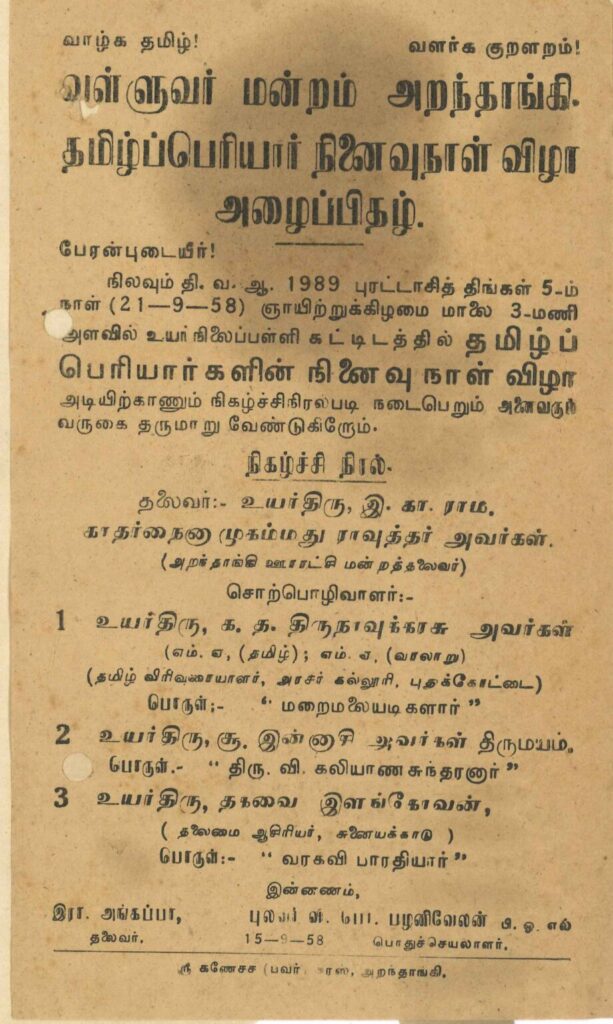 வாழ்க தமிழ்! வளர்க குறளறம்!
வள்ளுவர் மன்றம் அறந்தாங்கி.
தமிழ்ப்பெரியார் நினைவுநாள் விழா
அழைப்பிதழ்.
பேரன்புடையீர்!
நிலவும் தி. வ. ஆ. 1989 புரட்டாசித் திங்கள் 5-ம்
நாள் (21—9—58) ஞாயிற்றுக்கிழமை மாலை 3-மணி
அளவில் உயர்நிலைப்பள்ளி கட்டிடத்தில் தமிழ்ப்
பெரியார்களின் நினைவு நாள் விழா
அடியிற்காணும் நிகழ்ச்சிநிரல்படி நடைபெறும் அனைவரும்
வருகை தருமாறு வேண்டுகிறோம்.
நிகழ்ச்சி நிரல்.
தலைவர்:- உயர்திரு, இ. கா. ராம.
காதர்நைனா முகம்மது ராவுத்தர் அவர்கள்.
(அறந்தாங்கி ஊராட்சி மன்றத்தலைவர்)
சொற்பொழிவாளர்:-
1 உயர்திரு, க. த. திருநாவுக்கரசு அவர்கள்
(எம். ஏ, (தமிழ்); எம். ஏ, (வரலாறு)
(தமிழ் விரிவுரையாளர், அரசர் கல்லூரி, புதுக்கோட்டை)
பொருள்;- “ மறைமலையடிகளார் ”
2 உயர்திரு, சூ. இன்னாசி அவர்கள் திருமயம்.
பொருள்.- “ திரு. வி. கலியாணசுந்தரனார் ”
3 உயர்திரு, தகவை இளங்கோவன்,
( தலைமை ஆசிரியர், சுனையக்காடு )
பொருள்:- “ வரகவி பாரதியார் ”
இன்னணம்,
இரா. அங்கப்பா, புலவர் பழனிவேலன் பி. ஓ. எல்
தலைவர். 15—9—58 பொதுச்செயலாளர்.
ஸ்ரீ கணேசா (பவர் அறந்தாங்கி.